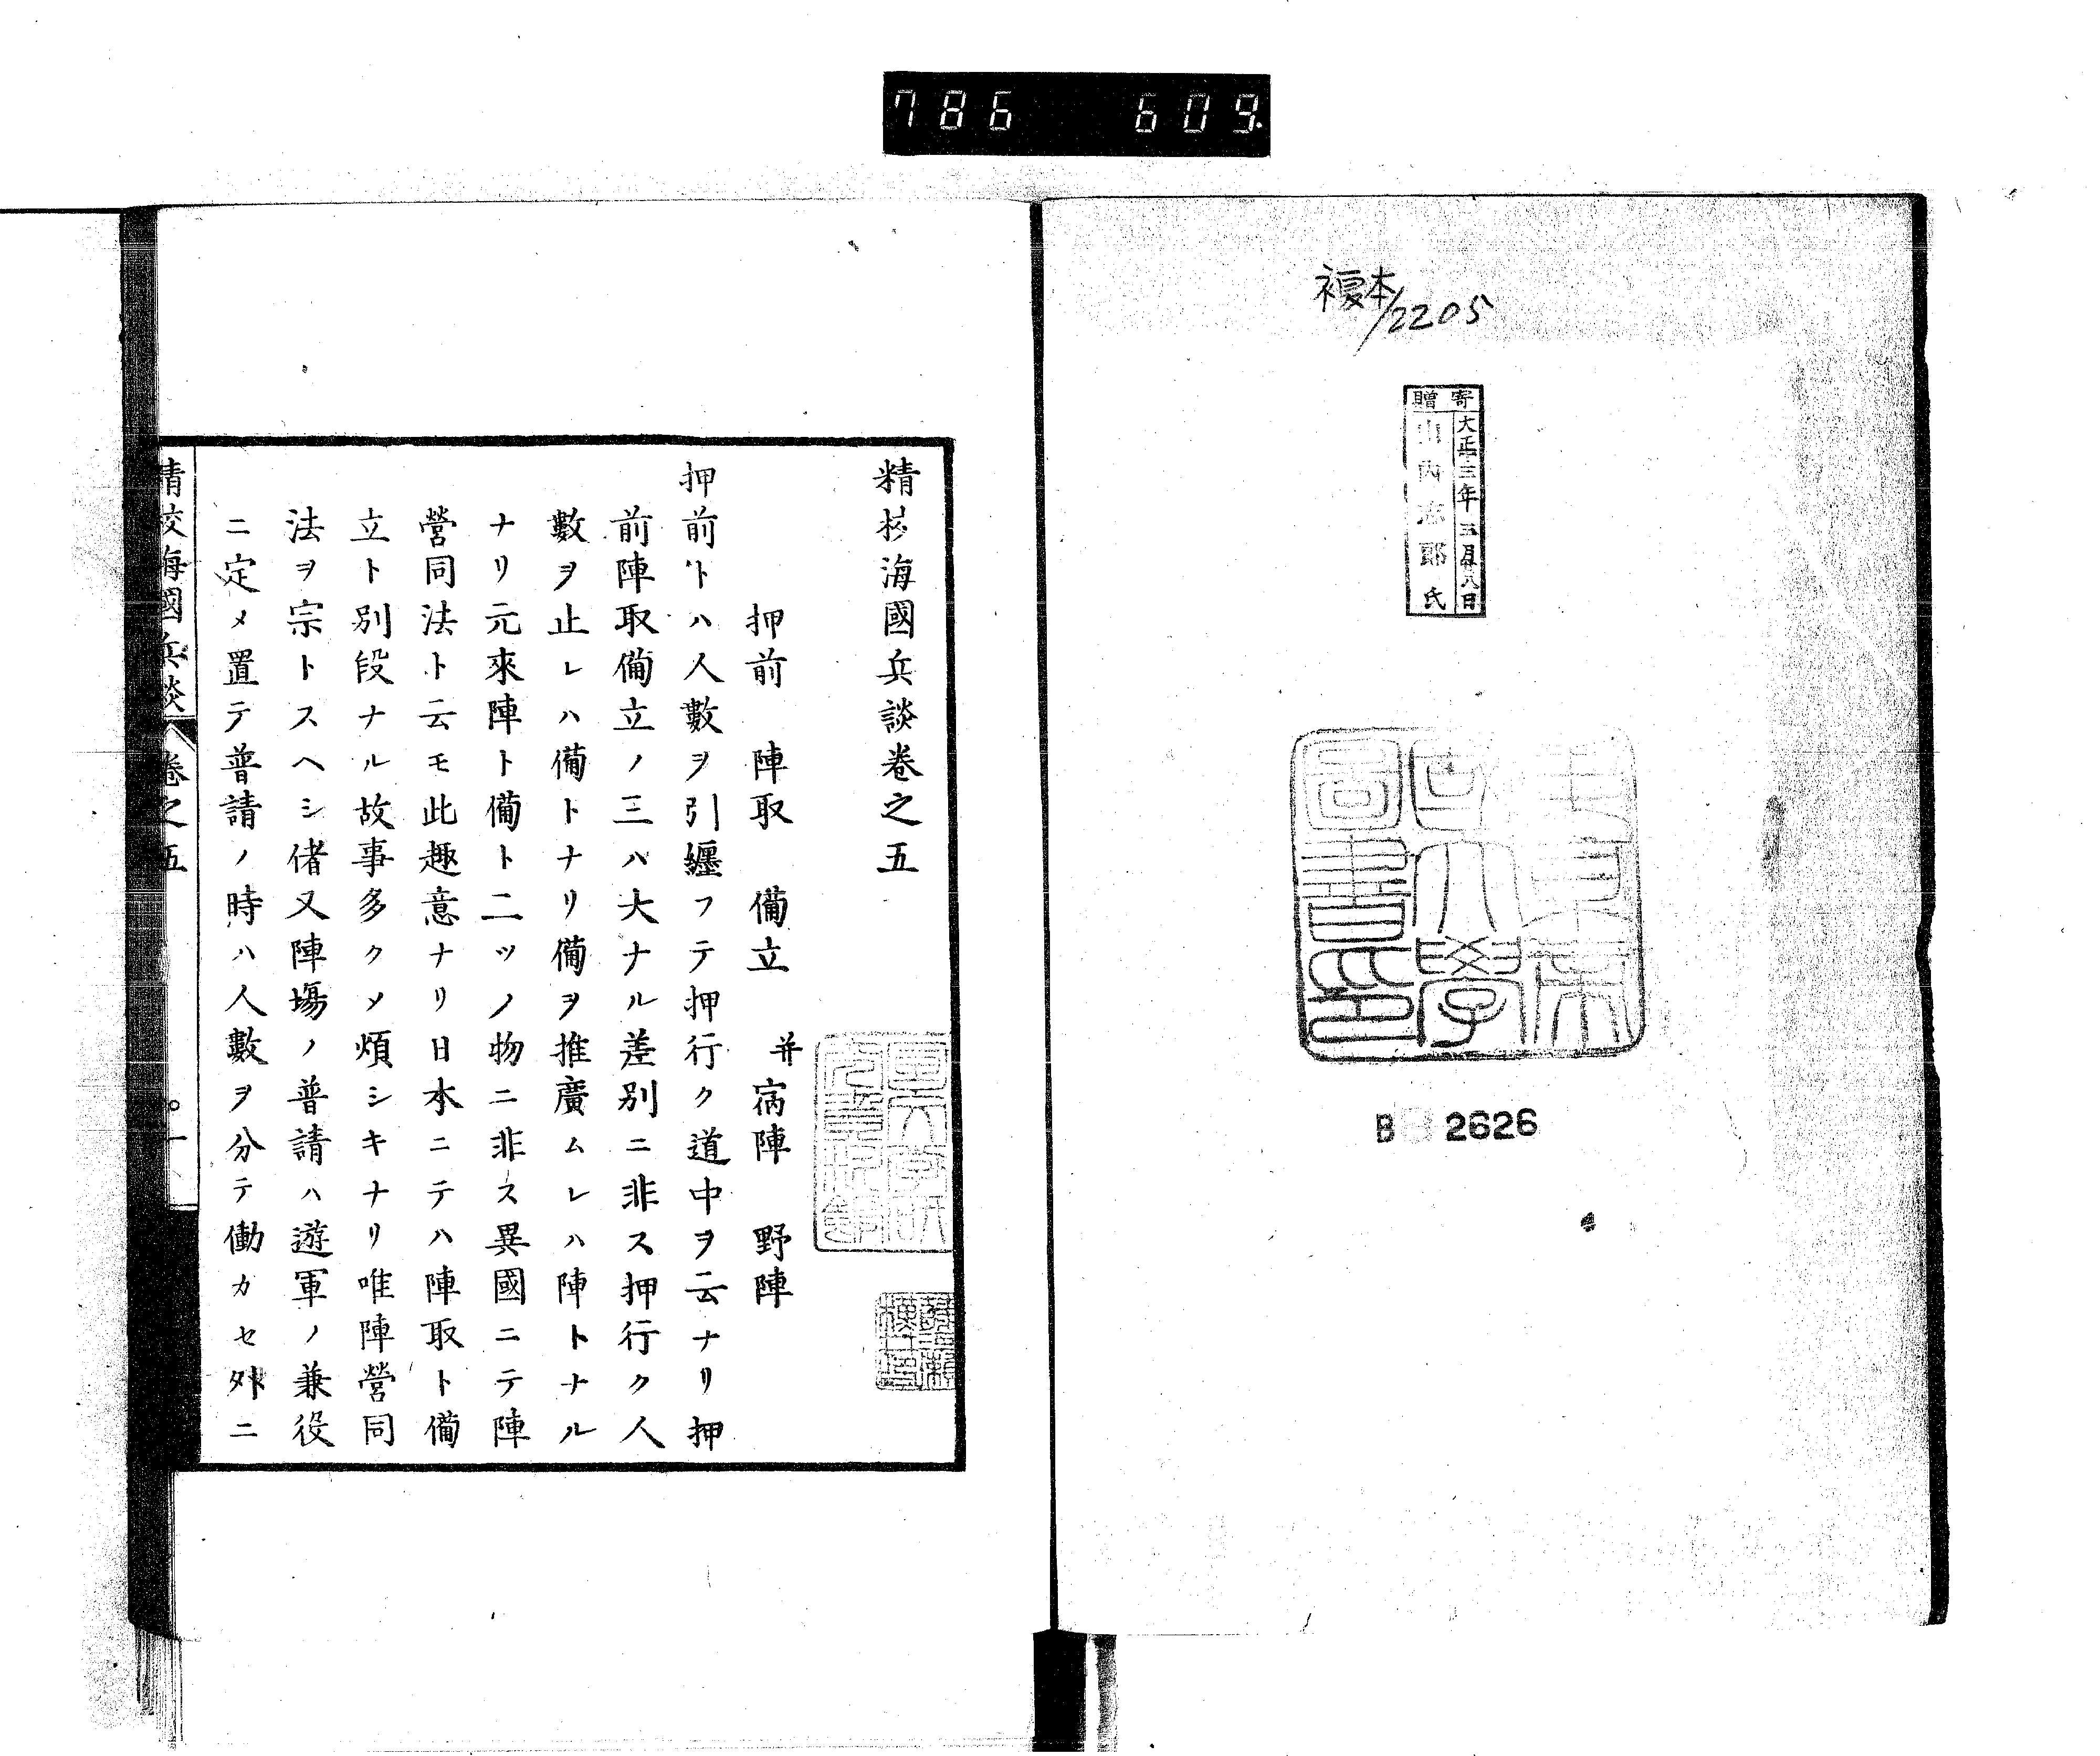 786 609.
複本/2205
寄贈
大正三年三月廿八日
山内 郎氏
B 2626
精校海國兵談卷之五
押前 陣取 備立 并宿陣 野陣
押前トハ人數ヲ引纏フテ押行ク道中ヲ云ナリ押
前陣取備立ノ三ハ大ナル差別ニ非ス押行ク人
數ヲ止レハ備トナリ備ヲ推廣ムレハ陣トナル
ナリ元來陣ト備ト二ツノ物ニ非ス異國ニテ陣
營同法ト云モ此趣意ナリ日本ニテハ陣取ト備
立ト別段ナル故事多クメ煩シキナリ唯陣營同
法ヲ宗トスヘシ偖又陣場ノ普請ハ遊軍ノ兼役
ニ定メ置テ普請ノ時ハ人數ヲ分テ働カセ外ニ
精校海國兵談 卷之五 一